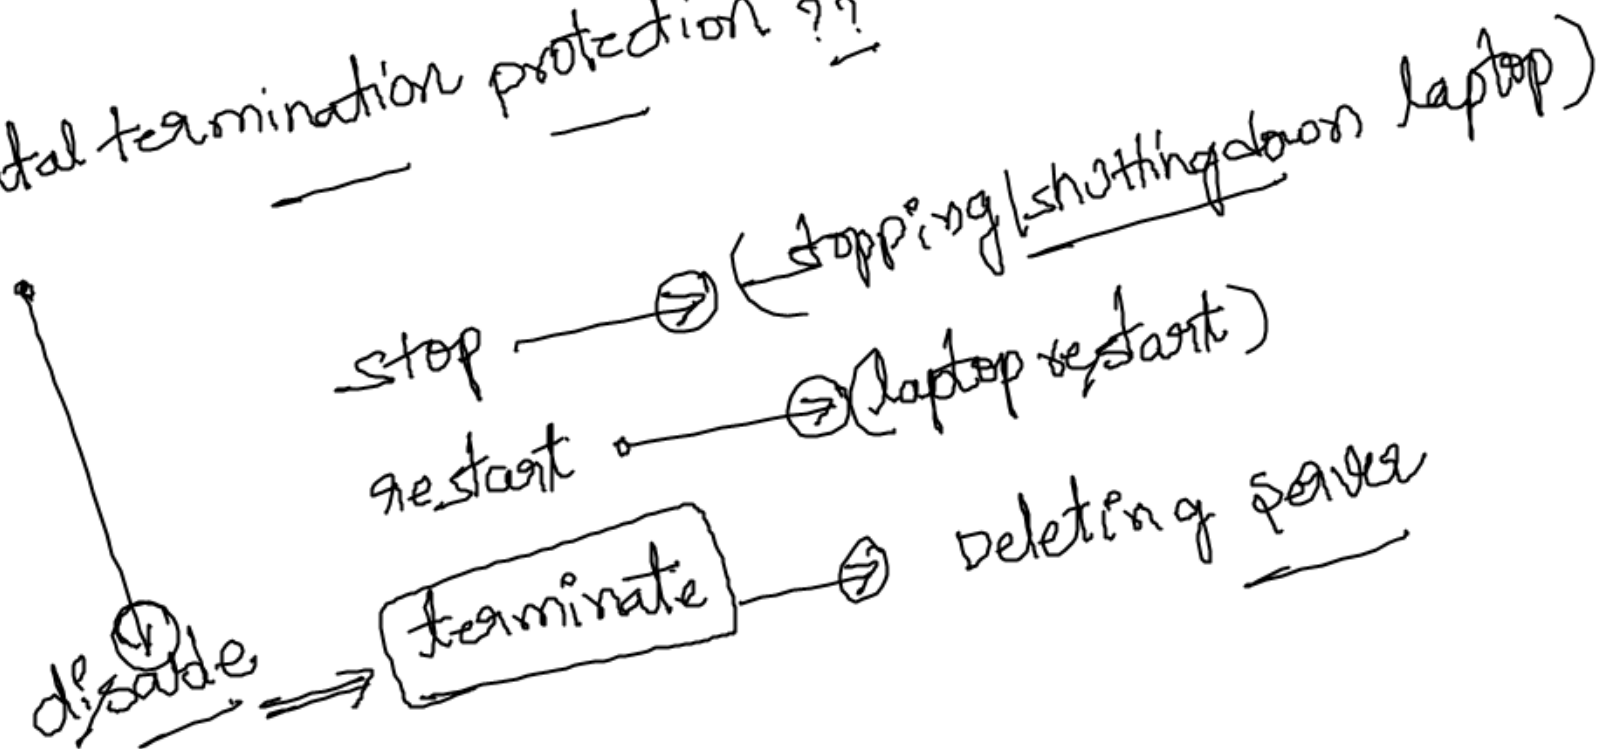 tal termination protection ??
stop → (stopping/shuttingdown laptop)
restart → (laptop restart)
terminate → Deleting server
disable ⇒